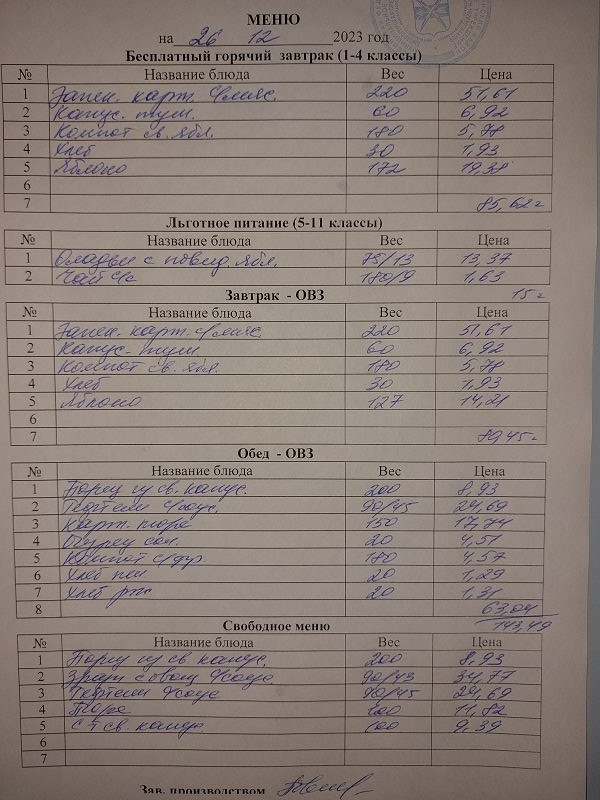 МЕНЮ
на 26 12 2023 год
Бесплатный горячий завтрак (1-4 классы)
№ Название блюда Вес Цена
1 Запек. карт. с мяс. 220 51,61
2 Капус. туш. 60 6,92
3 Компот св. ябл. 180 5,78
4 Хлеб 30 1,93
5 Яблоко 172 19,38
6
7 85,62
Льготное питание (5-11 классы)
№ Название блюда Вес Цена
1 Оладьи с повид. ябл. 75/13 13,37
2 Чай 180/9 1,63
Завтрак - ОВЗ 15
№ Название блюда Вес Цена
1 Запек. карт. с мяс 220 51,61
2 Капус. туш 60 6,92
3 Компот св. ябл. 180 5,78
4 Хлеб 30 1,93
5 Яблоко 127 14,21
6
7 80,45
Обед - ОВЗ
№ Название блюда Вес Цена
1 Борщ из св. капус. 200 8,93
2 Тефтели с соус. 90/45 24,69
3 Карт. пюре 150 17,74
4 Огурец сол. 20 4,51
5 Компот с/фр. 180 4,57
6 Хлеб пш 20 1,29
7 Хлеб рж 20 1,31
8 63,04
143,49
Свободное меню
№ Название блюда Вес Цена
1 Борщ из св капус. 200 8,93
2 90/43 34,77
3 Тефтели с соус 90/45 24,69
4 Пюре 100 11,82
5 с св. капус 100 9,39
6
7
Зав. производством